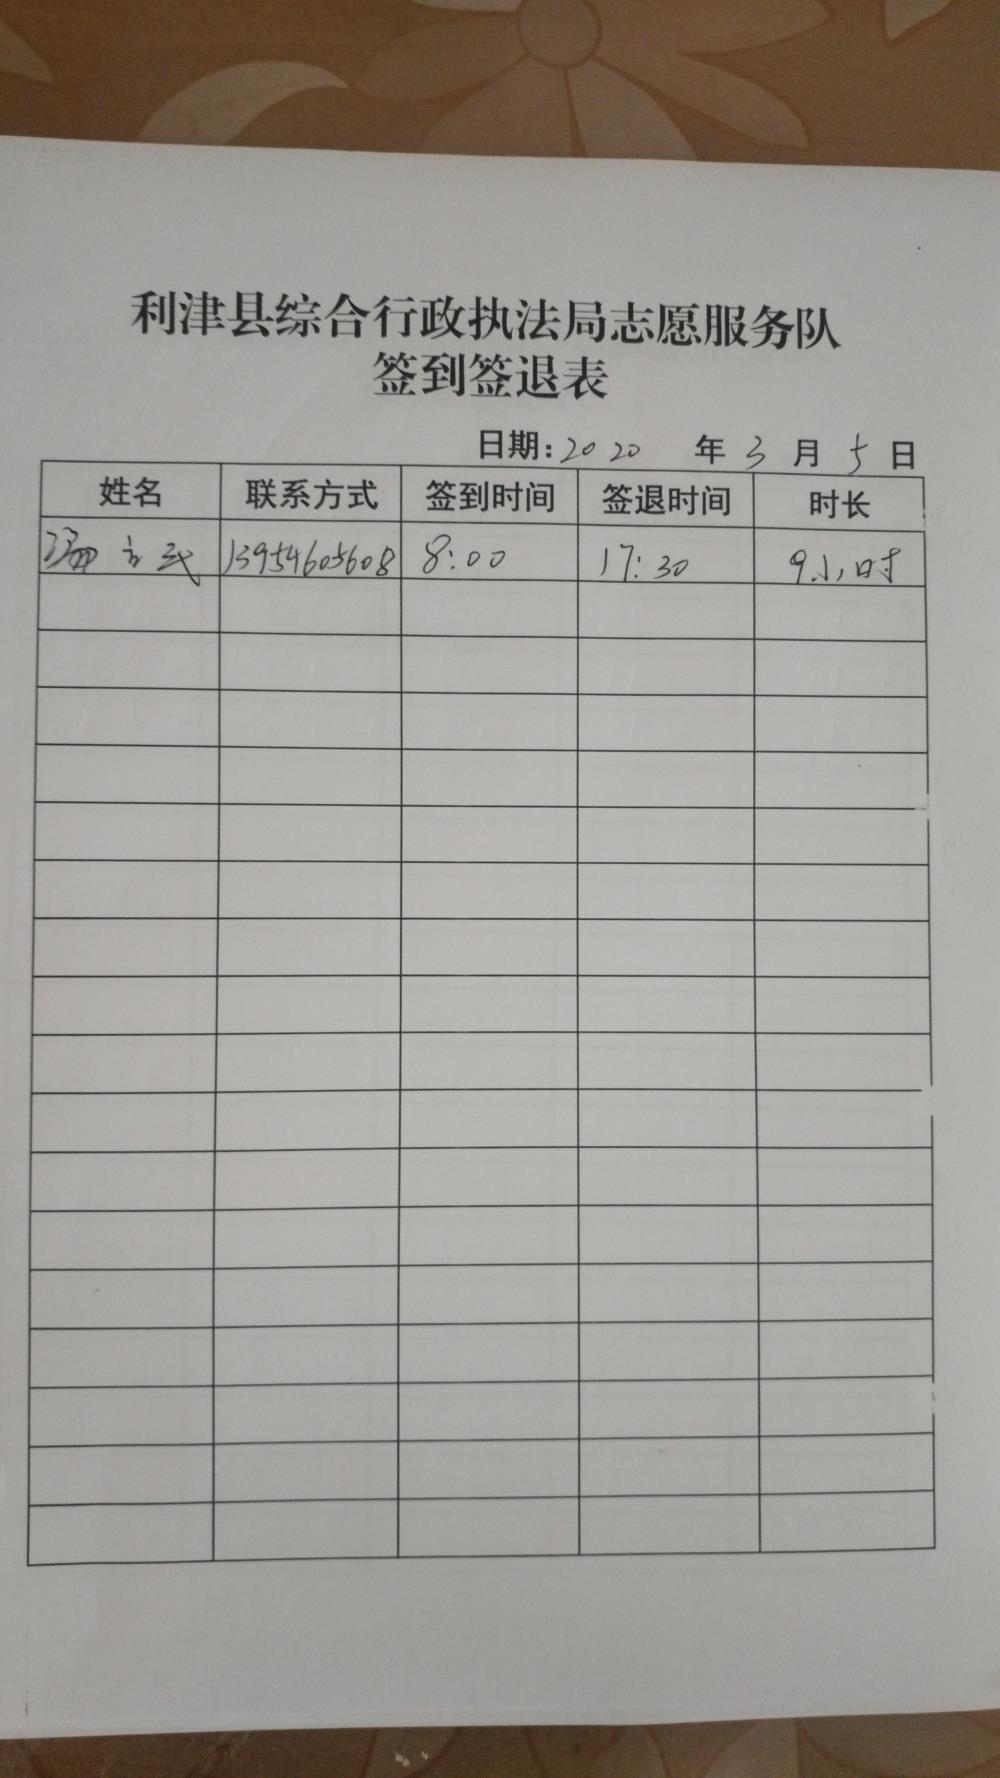 利津县综合行政执法局志愿服务队
签到签退表
日期:2020 年 3 月 5 日
姓名 联系方式 签到时间 签退时间 时长
13954605608 8:00 17:30 9小时